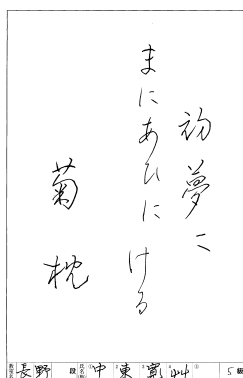 初夢に
まにあひにける
菊枕
長野 段 氏名 中東 5級